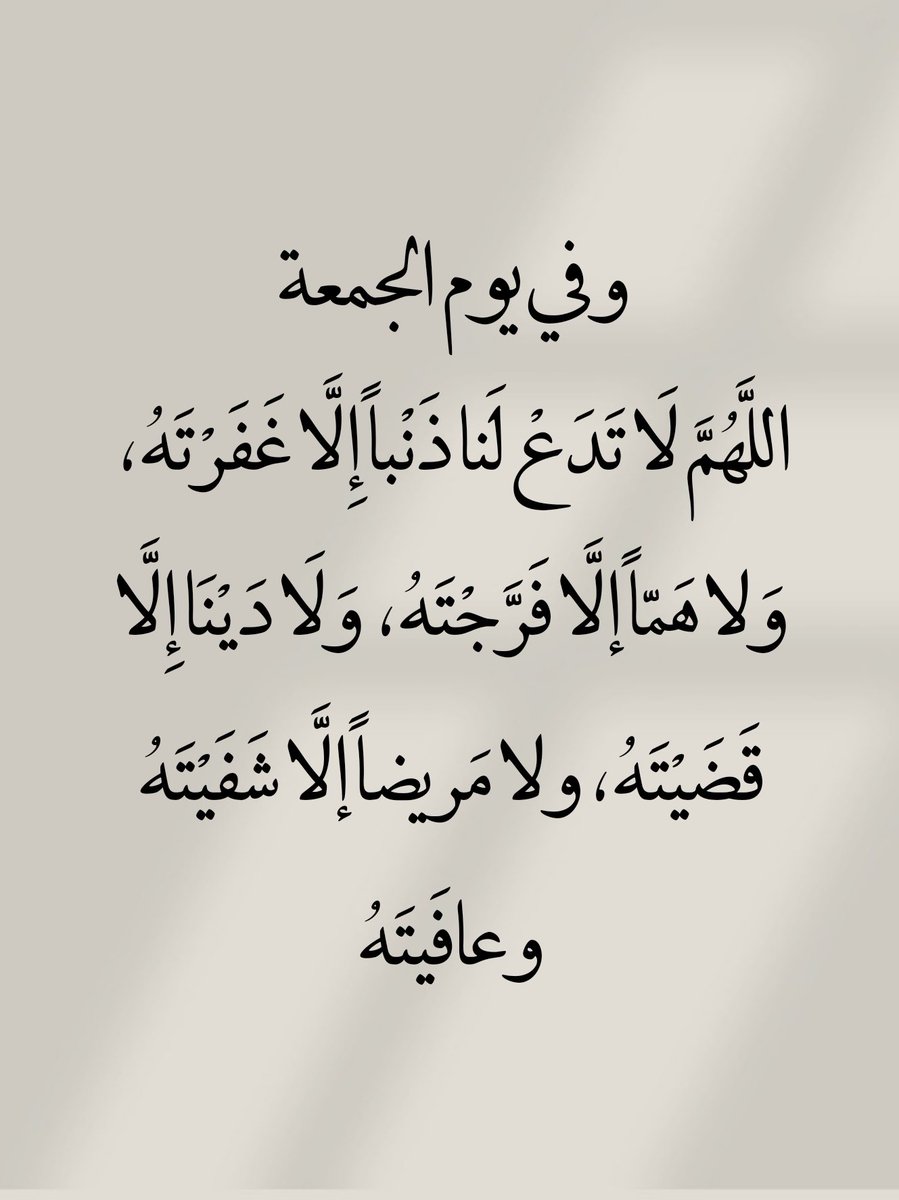 وفي يوم الجمعة
اللَّهُمَّ لَا تَدَعْ لَنا ذَنْباً إِلَّا غَفَرْتَهُ،
وَلا هَمّاً إلَّا فَرَّجْتَهُ، وَلَا دَيْنَا إِلَّا
قَضَيْتَهُ، ولا مَريضاً إلَّا شَفَيْتَهُ
وعافَيتَهُ